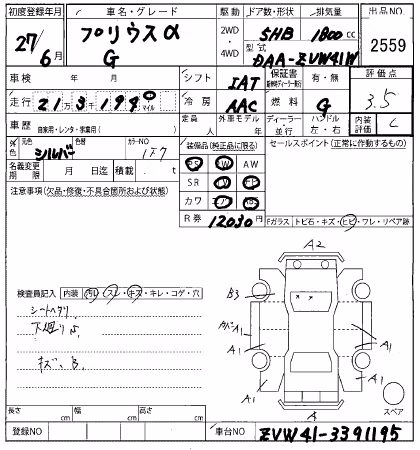 初度登録年月 車名・グレード 駆動 ドア数・形状 排気量 出品NO
27/6月 プリウスα G 2WD・4WD 5HB 1800cc 2559
型式 DAA-ZVW41W
車検 年 月 シフト IAT 保証書 有・無 評価点
走行 21万3千194 マイル 冷房 AAC 燃料 G 3.5
車歴 自家用・レンタ・事業用( ) 定員 人 外車モデル 年 ディーラー・並行 ハンドル 左・右 内装評価 C
外色 元色 シルバー 色 カラーNO 1F7 装備品(純正品に限る) セールスポイント(正常に作動するもの)
名義変更期限 月 日迄 積載 . t PS AW
注意事項(欠品・修復・不具合箇所および状態) SR TV
カワ
R券 12030円 Fガラス トビ石・キズ・ヒビ・ワレ・リペア跡
A2
検査員記入 内装 汚レ・スレ・キズ・キレ・コゲ・穴 B3
シートヘタリ
下廻りサ A1 A1
A1 A1
キズ、B A1 A1
A スペア
長さ cm 幅 cm 高さ cm
登録NO 車台NO ZVW41-3391195